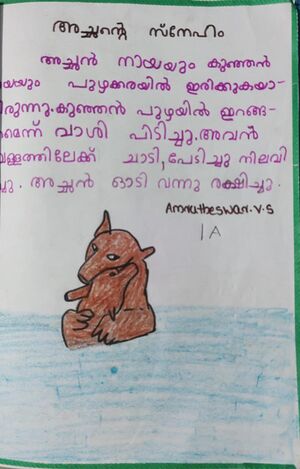 അച്ഛന്റെ സ്നേഹം
അച്ഛൻ നായയും കുഞ്ഞൻ
യയും പുഴക്കരയിൽ ഇരിക്കുകയാ-
രുന്നു. കുഞ്ഞൻ പുഴയിൽ ഇറങ്ങ-
മെന്ന് വാശി പിടിച്ചു. അവൻ
ള്ളത്തിലേക്ക് ചാടി, പേടിച്ചു നിലവി
ചു. അച്ഛൻ ഓടി വന്നു രക്ഷിച്ചു.
Amratheswar.V.S
1A